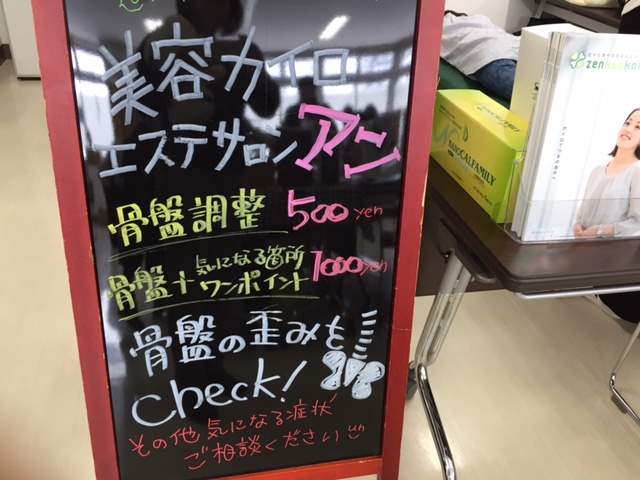 美容カイロ
エステサロン アン
骨盤調整 500yen
骨盤+気になる箇所ワンポイント 1000yen
骨盤の歪みを
check!
その他気になる症状
ご相談ください
NANOCALFAMILY